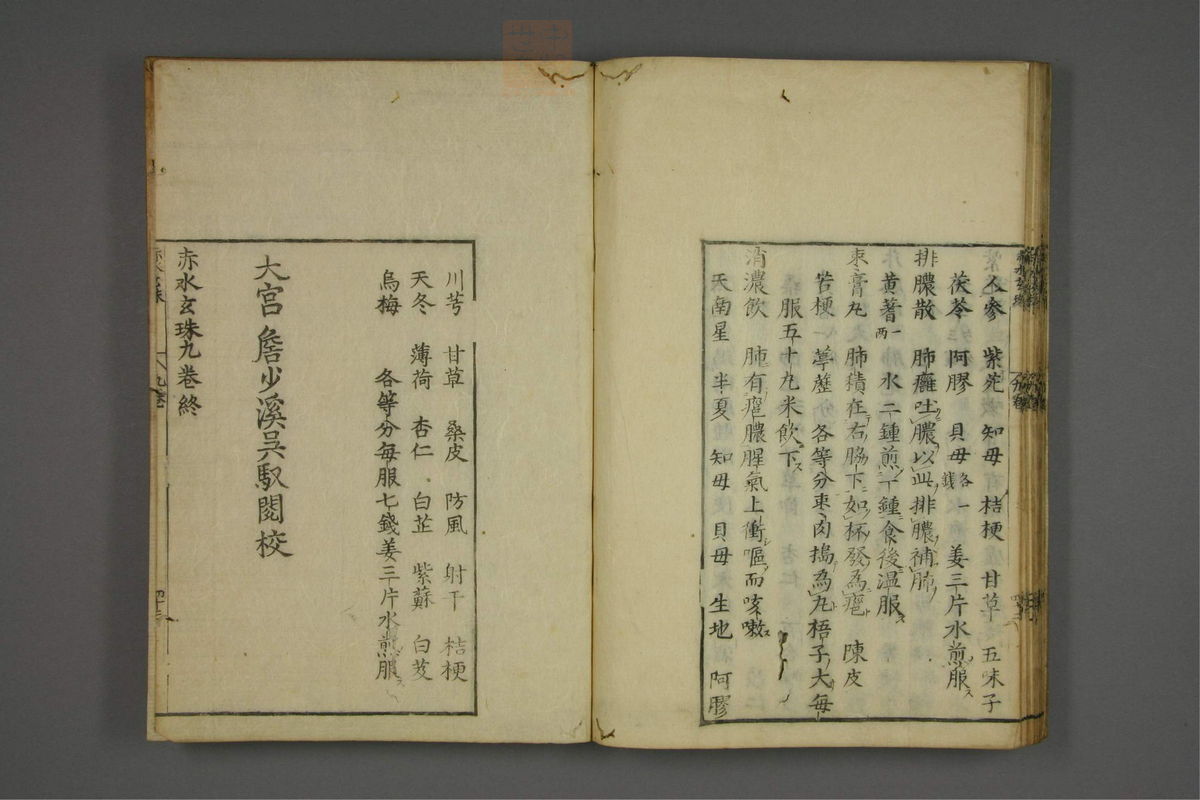 人參 紫菀 知母 桔梗 甘草 五味子
茯苓 阿膠 貝母各一錢 姜三片水煎服ス
排膿散 肺癰吐膿以此排膿補肺
黃蓍一兩 水二鍾煎一鍾食後温服ス
棗膏丸 肺積在右脇下如杯發為癰 陳皮
苦梗 葶藶各等分棗肉搗為丸梧子大每
服五十丸米飲下ス
消濃飲 肺有癰膿腥氣上衝嘔而咳嗽ス
天南星 半夏 知母 貝母 生地 阿膠
川芎 甘草 桑皮 防風 射干 桔梗
天冬 薄荷 杏仁 白芷 紫蘇 白芨
烏梅 各等分每服七錢姜三片水煎服ス
大宮 詹少溪吳馭閱校
赤水玄珠九卷終